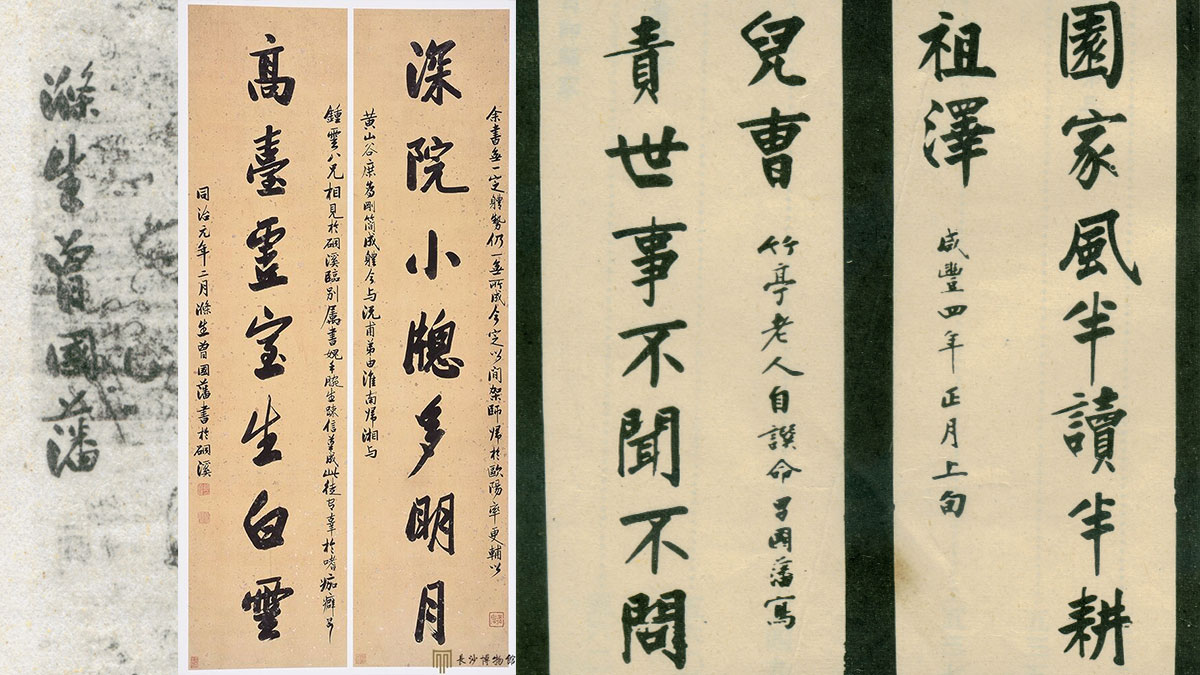 園家風半讀半耕
祖澤
咸豐四年正月上旬
兒曹
竹亭老人自譔命子國藩寫
責世事不聞不問
余書無一定體勢仍一無所成今定以間架師歸於歐陽率更輔以
深院小牕多明月
黃山谷庶為剛簡成體今与沅甫弟由淮南歸湘与
鍾雲八兄相見於硐溪臨別屬書媿手腕生疎信筆成此徒有辜於嗜痂癖
高臺虛室生白雲
同治元年二月滌生曾國藩書於硐溪
長沙博物館
滌生曾國藩